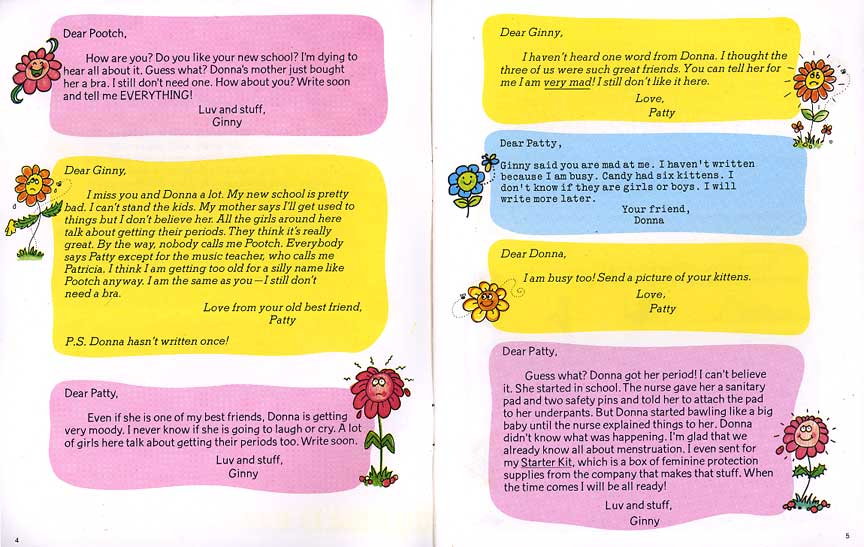 Dear Pootch,
How are you? Do you like your new school? I'm dying to
hear all about it. Guess what? Donna's mother just bought
her a bra. I still don't need one. How about you? Write soon
and tell me EVERYTHING!
Luv and stuff,
Ginny
Dear Ginny,
I miss you and Donna a lot. My new school is pretty
bad. I can't stand the kids. My mother says I'll get used to
things but I don't believe her. All the girls around here
talk about getting their periods. They think it's really
great. By the way, nobody calls me Pootch. Everybody
says Patty except for the music teacher, who calls me
Patricia. I think I am getting too old for a silly name like
Pootch anyway. I am the same as you—I still don't
need a bra.
Love from your old best friend,
Patty
P.S. Donna hasn't written once!
Dear Patty,
Even if she is one of my best friends, Donna is getting
very moody. I never know if she is going to laugh or cry. A lot
of girls here talk about getting their periods too. Write soon.
Luv and stuff,
Ginny
4
Dear Ginny,
I haven't heard one word from Donna. I thought the
three of us were such great friends. You can tell her for
me I am very mad! I still don't like it here.
Love,
Patty
Dear Patty,
Ginny said you are mad at me. I haven't written
because I am busy. Candy had six kittens. I
don't know if they are girls or boys. I will
write more later.
Your friend,
Donna
Dear Donna,
I am busy too! Send a picture of your kittens.
Love,
Patty
Dear Patty,
Guess what? Donna got her period! I can't believe
it. She started in school. The nurse gave her a sanitary
pad and two safety pins and told her to attach the pad
to her underpants. But Donna started bawling like a big
baby until the nurse explained things to her. Donna
didn't know what was happening. I'm glad that we
already know all about menstruation. I even sent for
my Starter Kit, which is a box of feminine protection
supplies from the company that makes that stuff. When
the time comes I will be all ready!
Luv and stuff,
Ginny
5